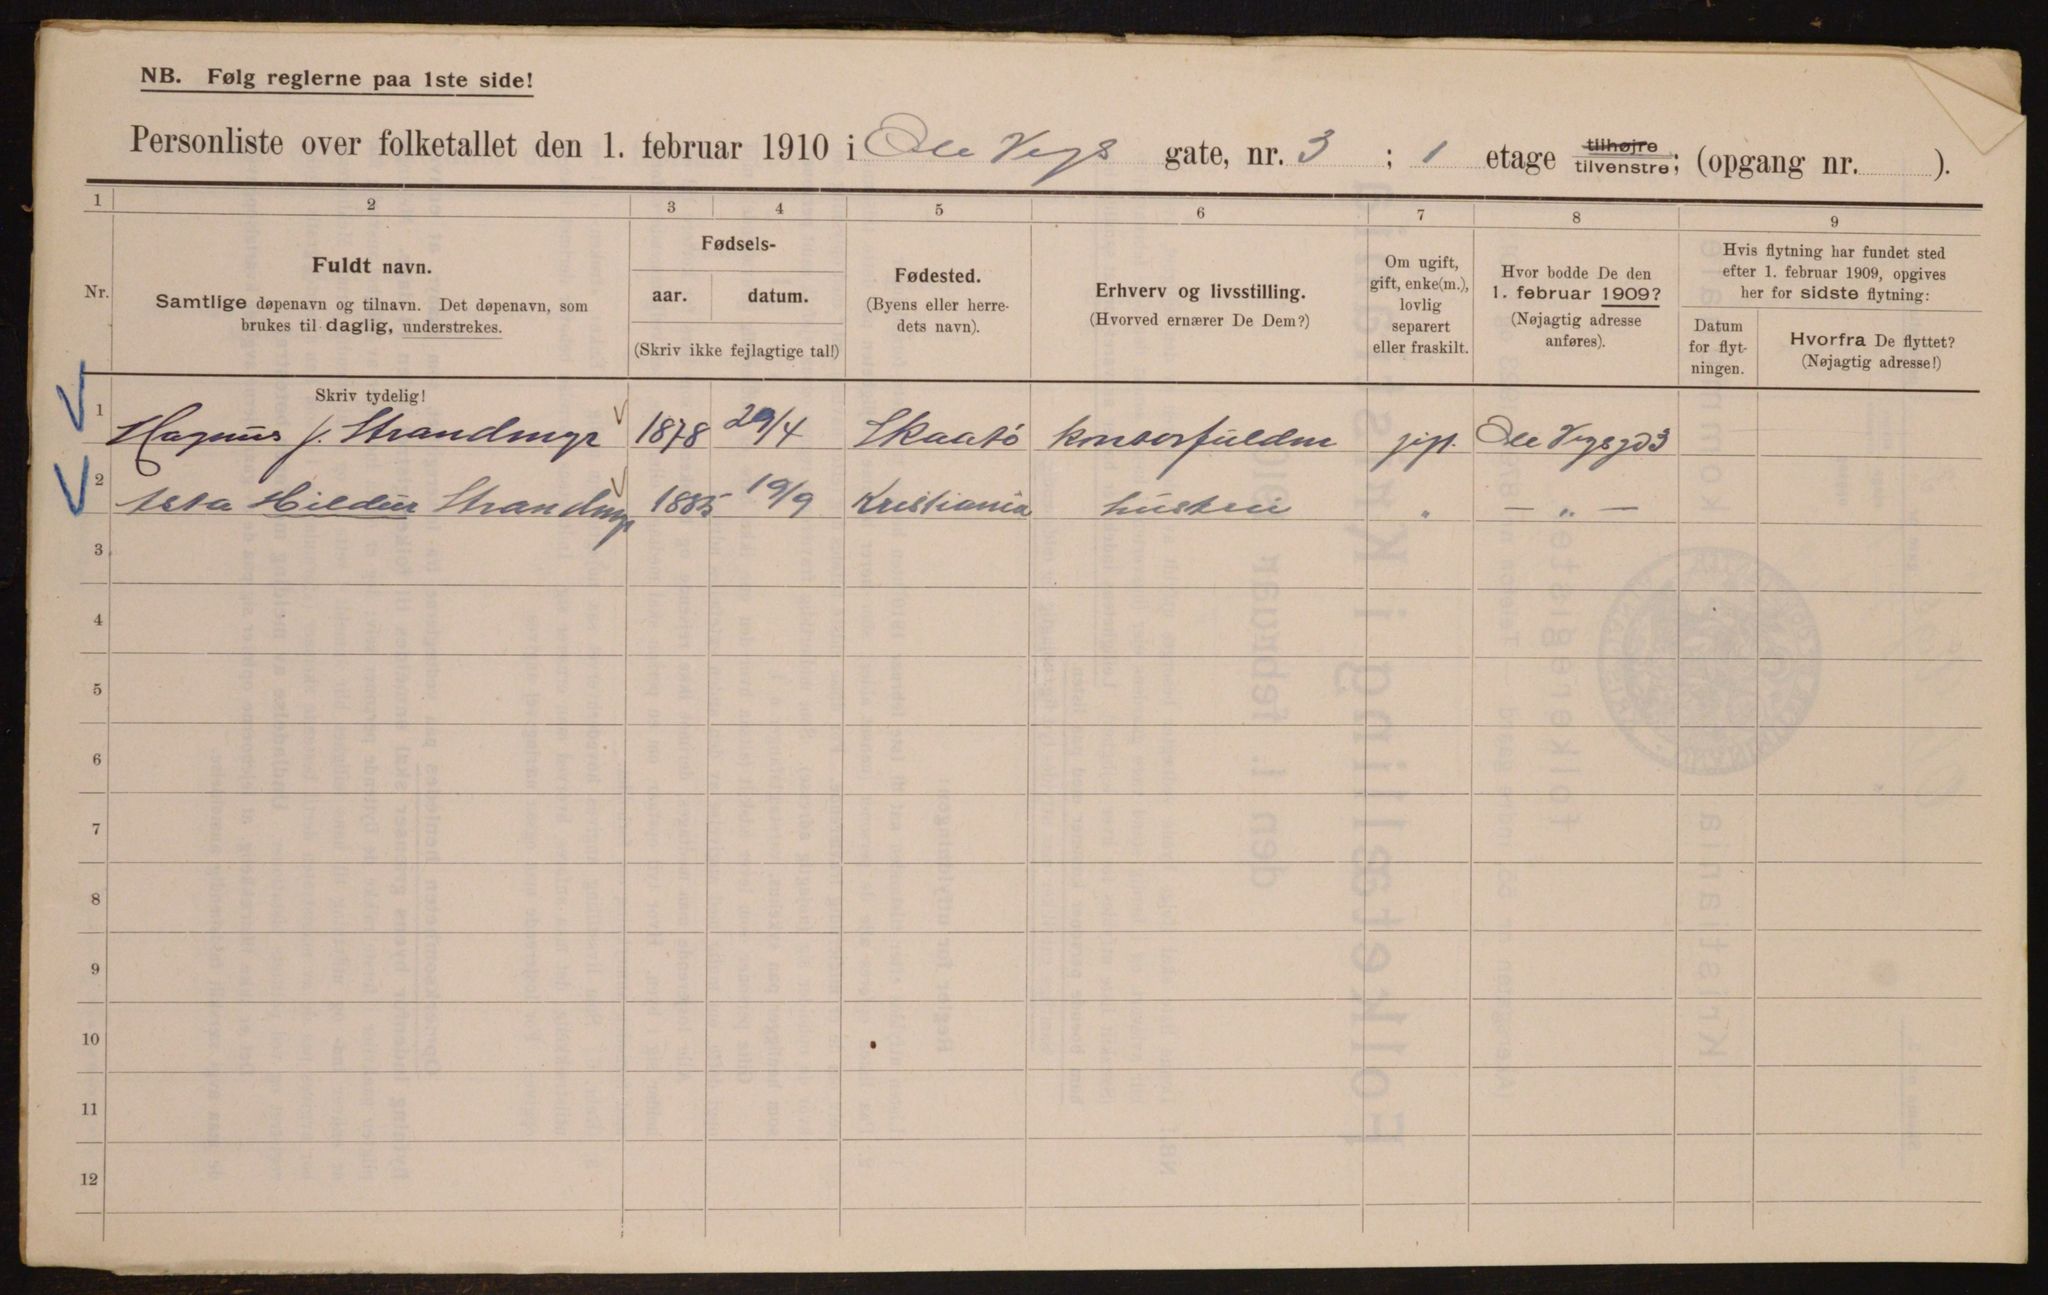 NB. Følg reglerne paa 1ste side!
Personliste over folketallet den 1. februar 1910 i Ole Vigs gate, nr. 3 ; 1 etage tilhøjre tilvenstre; (opgang nr. ).
1 2 3 4 5 6 7 8 9
Nr.
Fuldt navn.
Samtlige døpenavn og tilnavn. Det døpenavn, som
brukes til daglig, understrekes.
Fødsels-
aar. datum.
(Skriv ikke fejlagtige tal!)
Fødested.
(Byens eller herre-
dets navn).
Erhverv og livsstilling.
(Hvorved ernærer De Dem?)
Om ugift,
gift, enke(m.),
lovlig
separert
eller fraskilt.
Hvor bodde De den
1. februar 1909?
(Nøjagtig adresse
anføres).
Hvis flytning har fundet sted
efter 1. februar 1909, opgives
her for sidste flytning:
Datum
for flyt-
ningen.
Hvorfra De flyttet?
(Nøjagtig adresse!)
Skriv tydelig!
1 Magnus J. Strandmyr 1878 29/4 Skaatö kontorfuldm gift. Ole Vigsgd 3
2 Asta Hildur Strandmyr 1885 19/9 Kristiania hustru " — " —
3
4
5
6
7
8
9
10
11
12